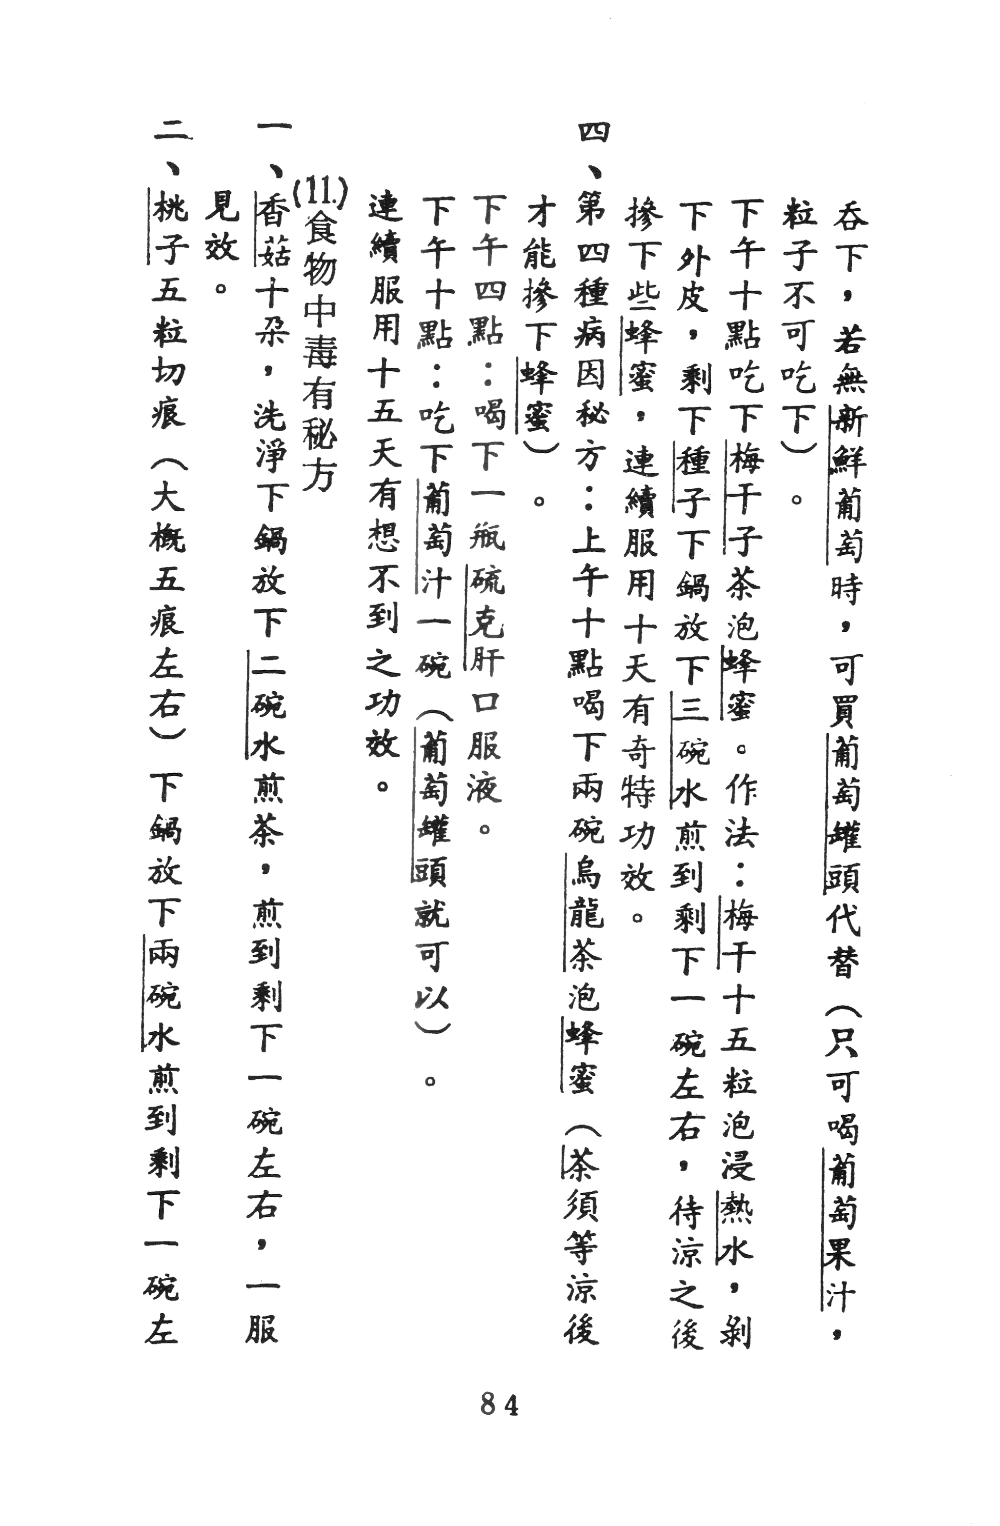 吞下，若無新鮮葡萄時，可買葡萄罐頭代替（只可喝葡萄果汁，
粒子不可吃下）。
下午十點吃下梅干子茶泡蜂蜜。作法：梅干十五粒泡浸熱水，剝
下外皮，剩下種子下鍋放下三碗水煎到剩下一碗左右，待涼之後
摻下些蜂蜜，連續服用十天有奇特功效。
四、第四種病因秘方：上午十點喝下兩碗烏龍茶泡蜂蜜（茶須等涼後
才能摻下蜂蜜）。
下午四點：喝下一瓶硫克肝口服液。
下午十點：吃下葡萄汁一碗（葡萄罐頭就可以）。
連續服用十五天有想不到之功效。
(11.)食物中毒有秘方
一、香菇十朵，洗淨下鍋放下二碗水煎茶，煎到剩下一碗左右，一服
見效。
二、桃子五粒切痕（大概五痕左右）下鍋放下兩碗水煎到剩下一碗左
84